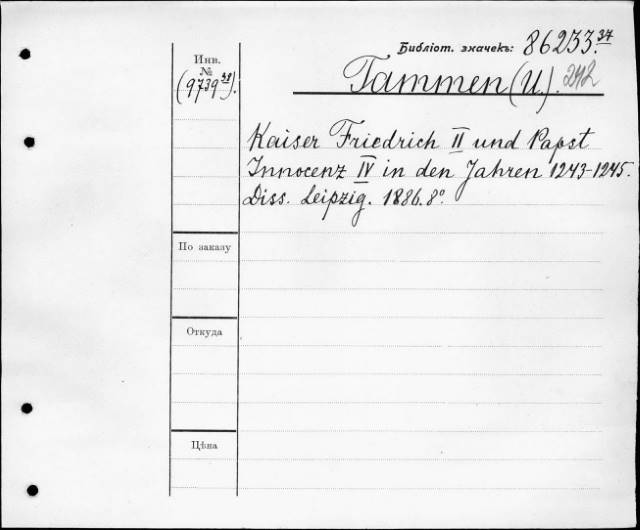 Библіот. значекъ: 86233.37
Инв.
№
(9739 48).
Tammen (U.). 242
Kaiser Friedrich II und Papst
Innocenz IV in den Jahren 1243-1245.
Diss. Leipzig. 1886. 8º.
По заказу
Откуда
Цѣна